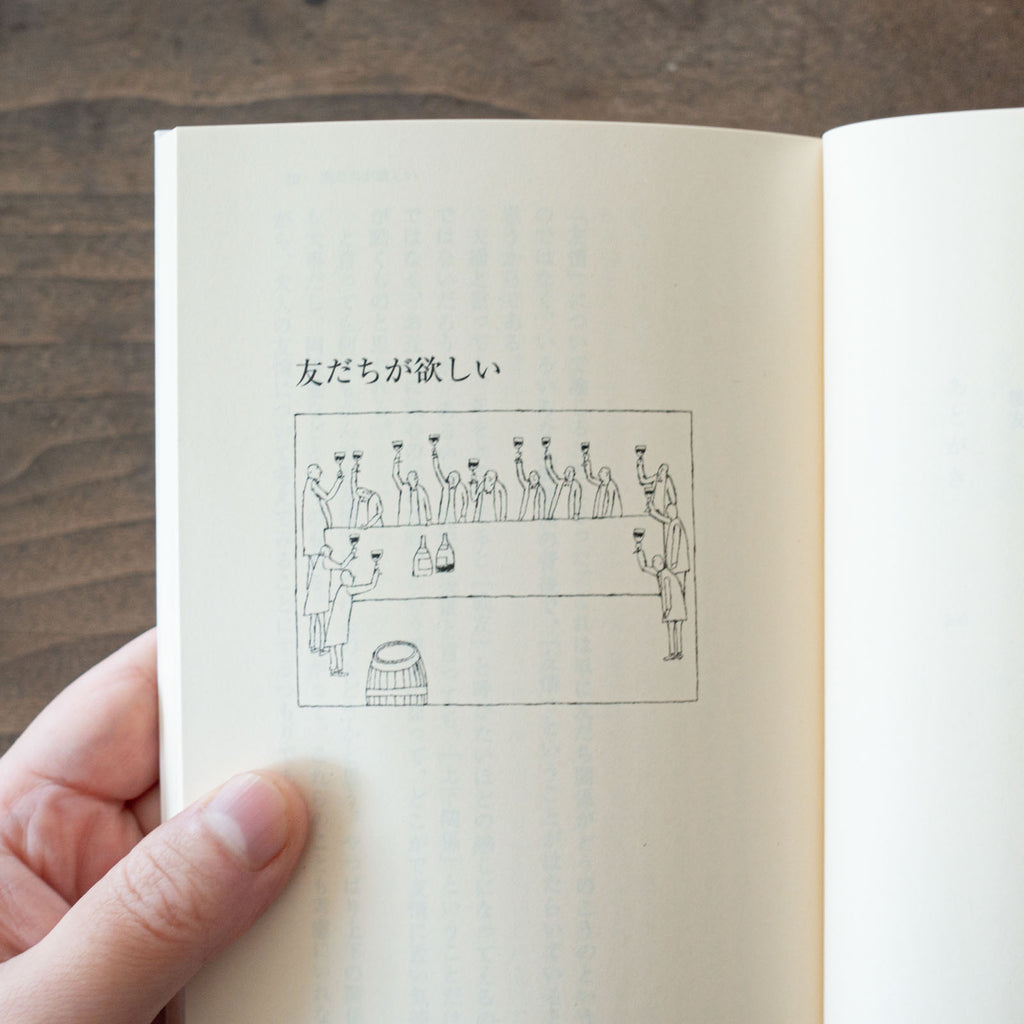 友だちが欲しい